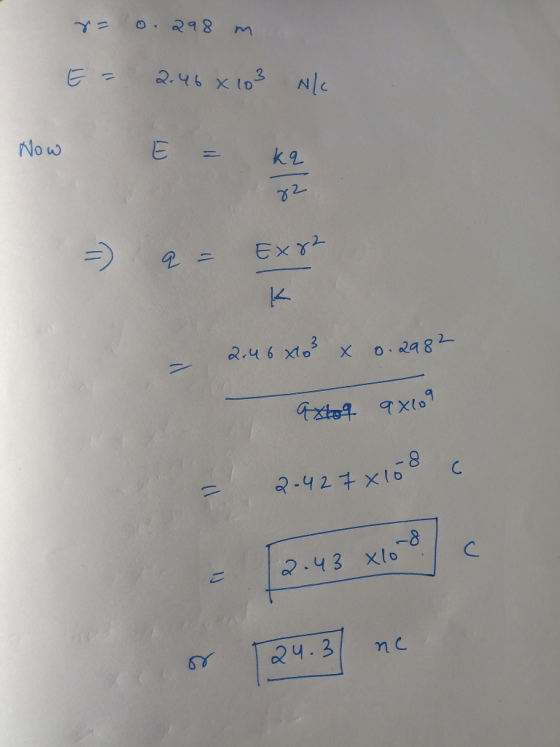 r = 0.298 m
E = 2.46 × 10³ N/C
Now E = kq / r²
⇒ q = E × r² / K
= 2.46 × 10³ × 0.298² / 9 × 10⁹
= 2.427 × 10⁻⁸ C
= 2.43 × 10⁻⁸ C
or 24.3 nC